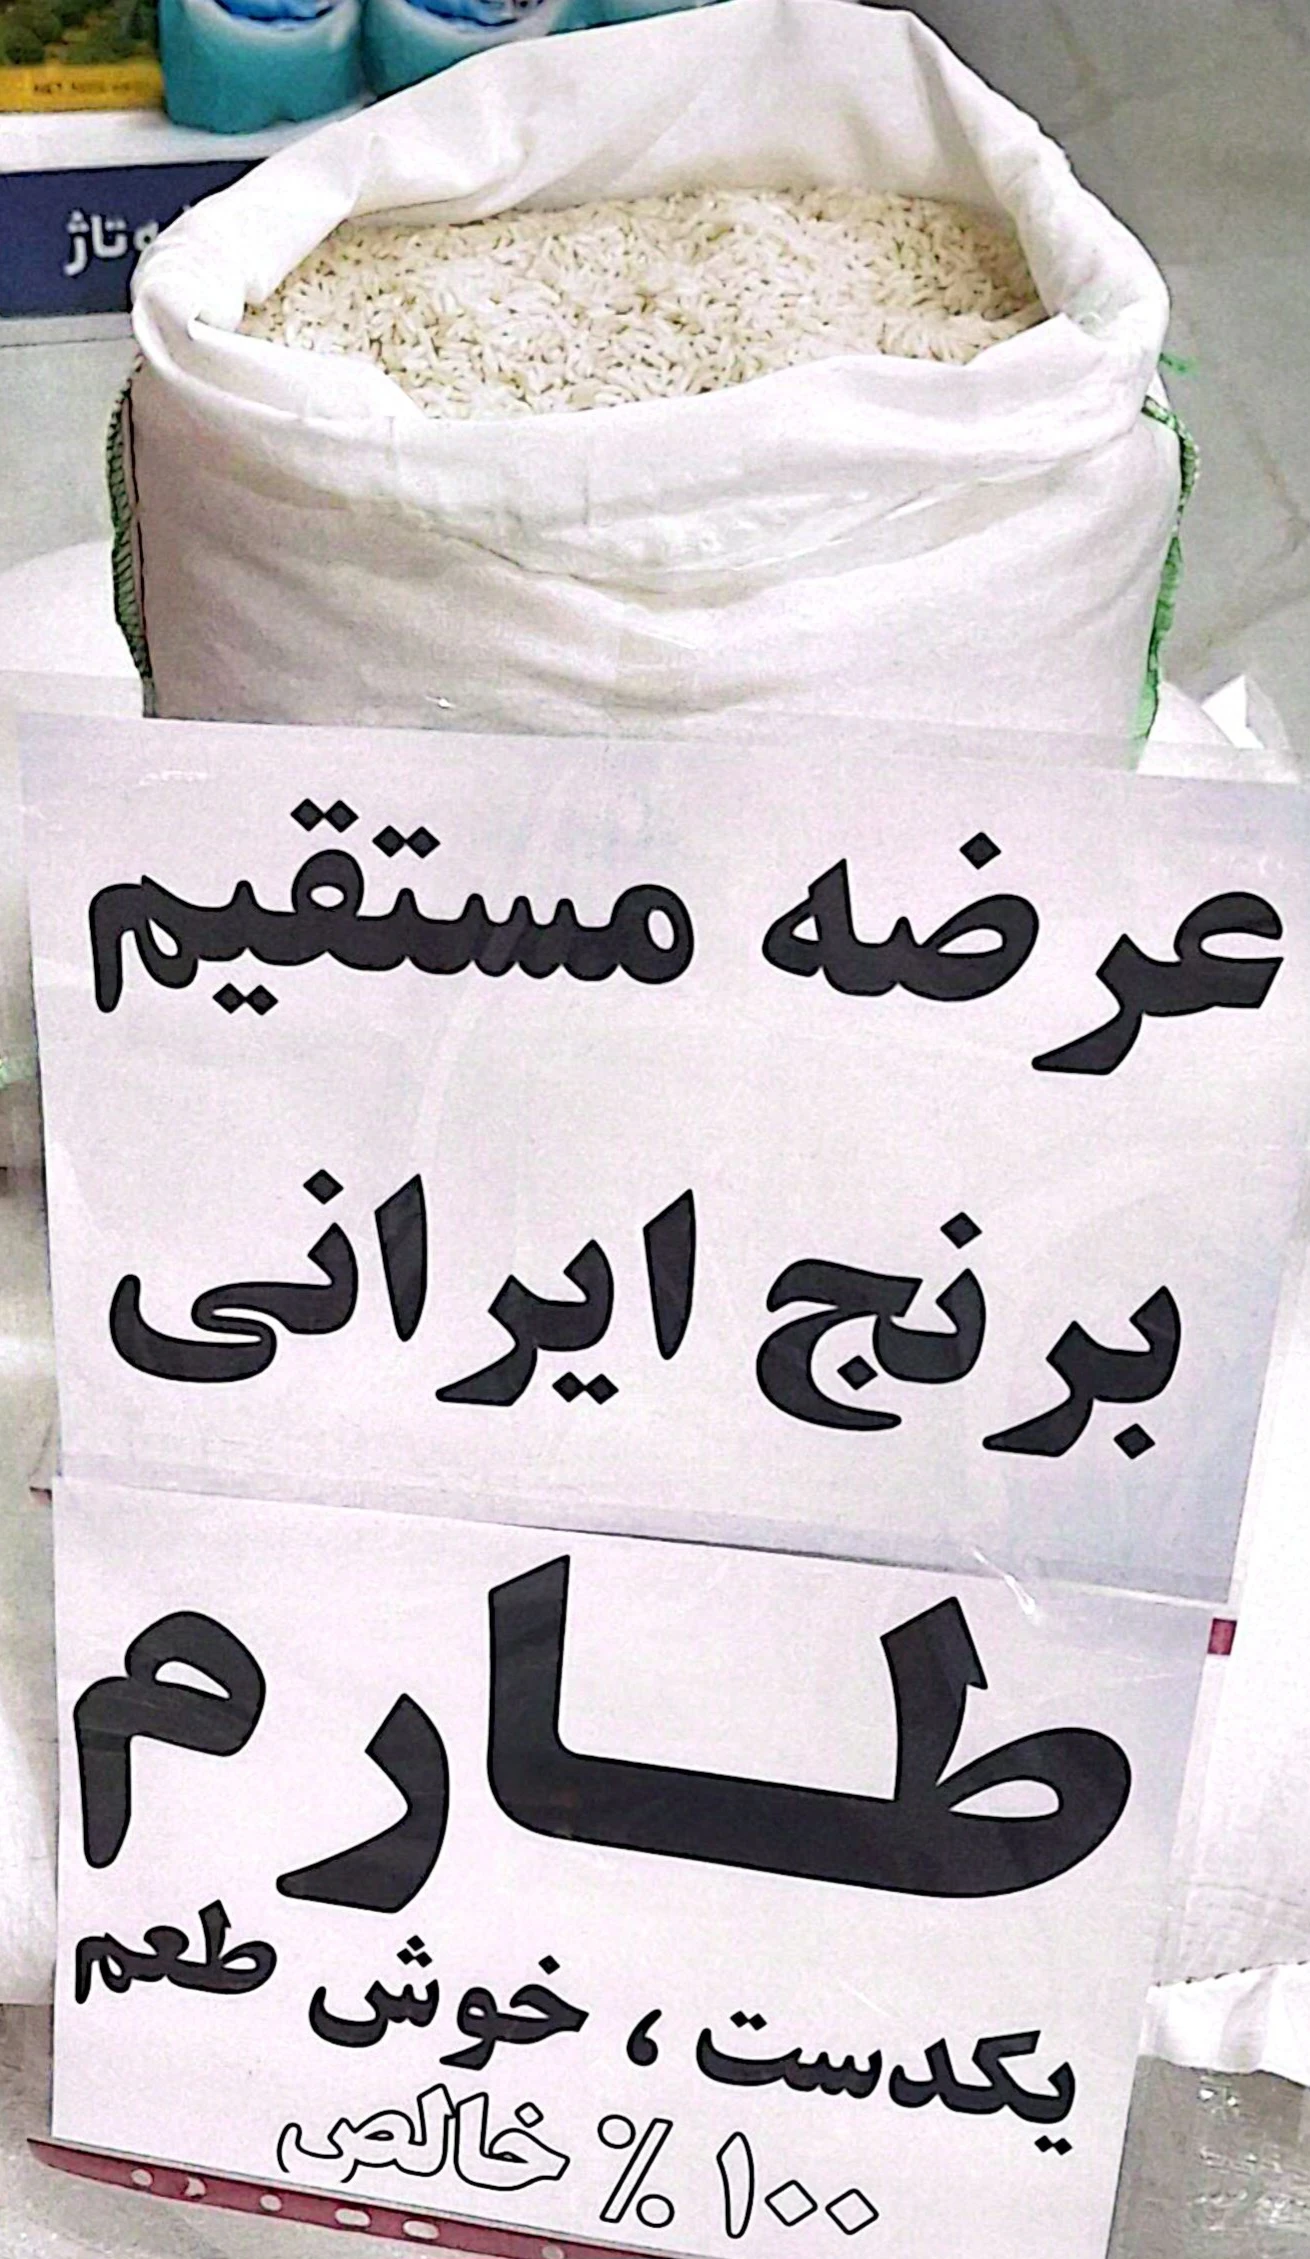 تاژ
عرضه مستقیم
برنج ایرانی
طارم
یکدست ، خوش طعم
۱۰۰ % خالص